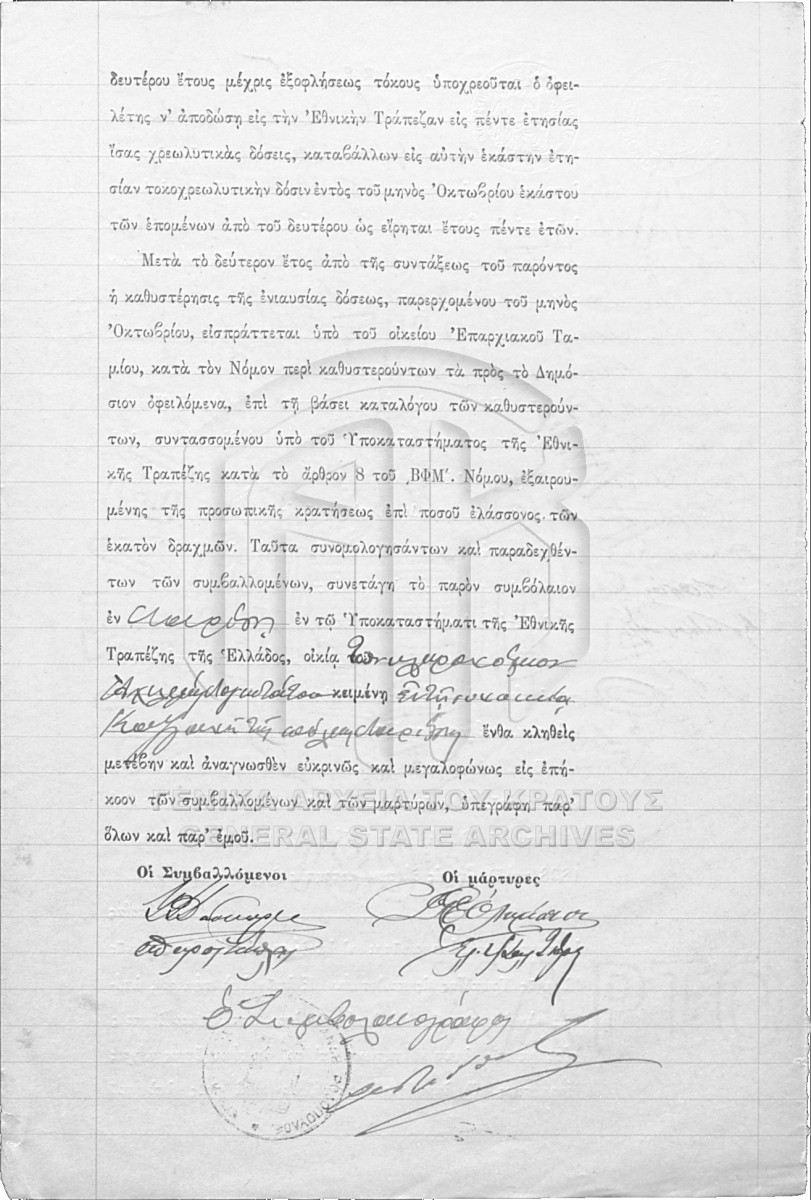 δευτέρου ἔτους μέχρις ἐξοφλήσεως τόκους ὑποχρεοῦται ὁ ὀφει-
λέτης ν' ἀποδώσῃ εἰς τὴν Ἐθνικὴν Τράπεζαν εἰς πέντε ἐτησίας
ἴσας χρεωλυτικὰς δόσεις, καταβάλλων εἰς αὐτὴν ἑκάστην ἐτη-
σίαν τοκοχρεωλυτικὴν δόσιν ἐντὸς τοῦ μηνὸς Ὀκτωβρίου ἑκάστου
τῶν ἑπομένων ἀπὸ τοῦ δευτέρου ὡς εἴρηται ἔτους πέντε ἐτῶν.
Μετὰ τὸ δεύτερον ἔτος ἀπὸ τῆς συντάξεως τοῦ παρόντος
ἡ καθυστέρησις τῆς ἐνιαυσίας δόσεως, παρερχομένου τοῦ μηνὸς
Ὀκτωβρίου, εἰσπράττεται ὑπὸ τοῦ οἰκείου Ἐπαρχιακοῦ Τα-
μίου, κατὰ τὸν Νόμον περὶ καθυστερούντων τὰ πρὸς τὸ Δημό-
σιον ὀφειλόμενα, ἐπὶ τῇ βάσει καταλόγου τῶν καθυστερούν-
των, συντασσομένου ὑπὸ τοῦ Ὑποκαταστήματος τῆς Ἐθνι-
κῆς Τραπέζης κατὰ τὸ ἄρθρον 8 τοῦ ͵ΒΦΜ΄. Νόμου, ἐξαιρου-
μένης τῆς προσωπικῆς κρατήσεως ἐπὶ ποσοῦ ἐλάσσονος τῶν
ἑκατὸν δραχμῶν. Ταῦτα συνομολογησάντων καὶ παραδεχθέν-
των τῶν συμβαλλομένων, συνετάγη τὸ παρὸν συμβόλαιον
ἐν Λαρίσῃ ἐν τῷ Ὑποκαταστήματι τῆς Ἐθνικῆς
Τραπέζης τῆς Ἑλλάδος, οἰκίᾳ
κειμένῃ
ἔνθα κληθεὶς
μετέβην καὶ ἀναγνωσθὲν εὐκρινῶς καὶ μεγαλοφώνως εἰς ἐπή-
κοον τῶν συμβαλλομένων καὶ τῶν μαρτύρων, ὑπεγράφη παρ'
ὅλων καὶ παρ' ἐμοῦ.
ΓΕΝΙΚΑ ΑΡΧΕΙΑ ΤΟΥ ΚΡΑΤΟΥΣ
GENERAL STATE ARCHIVES
Οἱ Συμβαλλόμενοι Οἱ μάρτυρες
Ὁ Συμβολαιογράφος